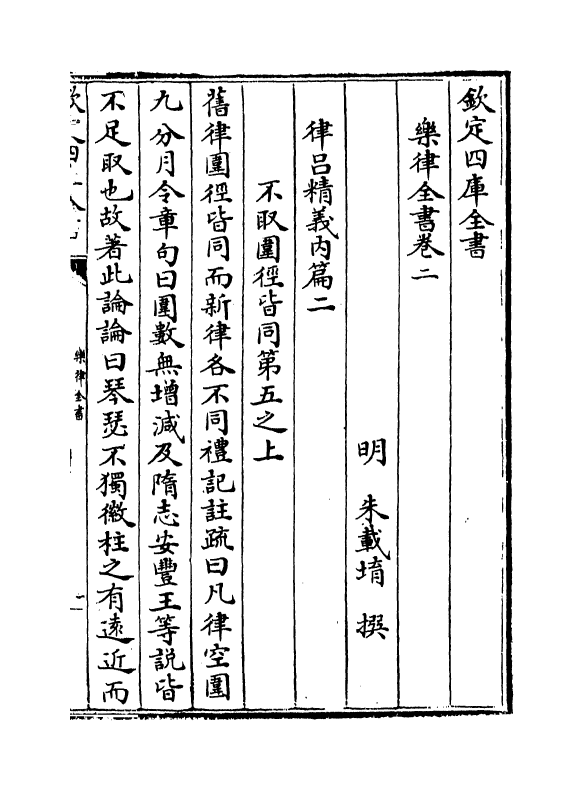 欽定四庫全書
樂律全書卷二
明 朱載堉 撰
律呂精義內篇二
不取圍徑皆同第五之上
舊律圍徑皆同而新律各不同禮記註疏曰凡律空圍
九分月令章句曰圍數無增減及隋志安豐王等説皆
不足取也故著此論論曰琴瑟不獨徽柱之有遠近而
樂律全書
一